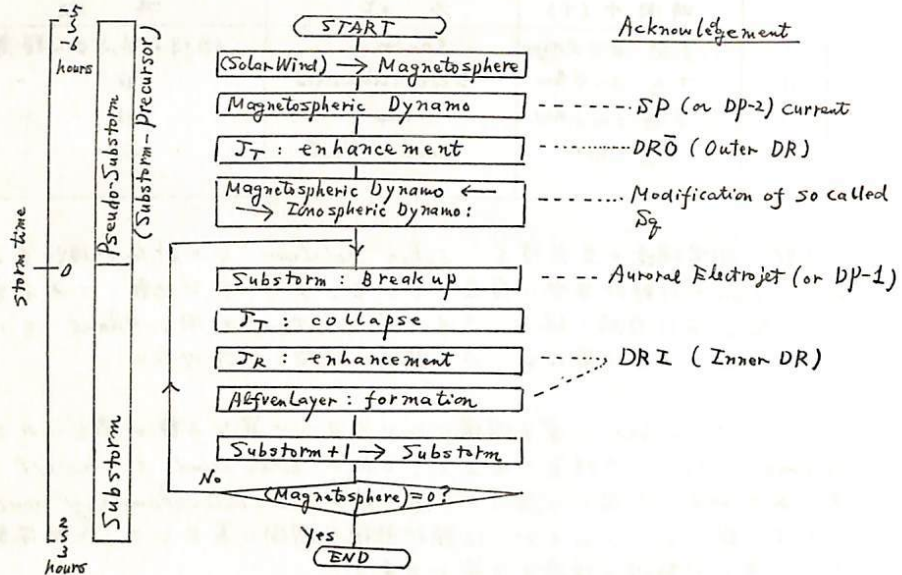 -5
~
-1
hours
storm time
0
2
~
3
hours
Pseudo-Substorm
(Substorm-Precursor)
Substorm
START
(Solar Wind) → Magnetosphere
Magnetospheric Dynamo
J_T : enhancement
Magnetospheric Dynamo ←
→ Ionospheric Dynamo :
Substorm : Break up
J_T : collapse
J_R : enhancement
Alfven Layer : formation
Substorm+1 → Substorm
No
(Magnetosphere)=0?
Yes
END
Acknowledgement
SP (or DP-2) current
DRŌ (Outer DR)
Modification of so called
Sq
Auroral Electrojet (or DP-1)
DRI (Inner DR)